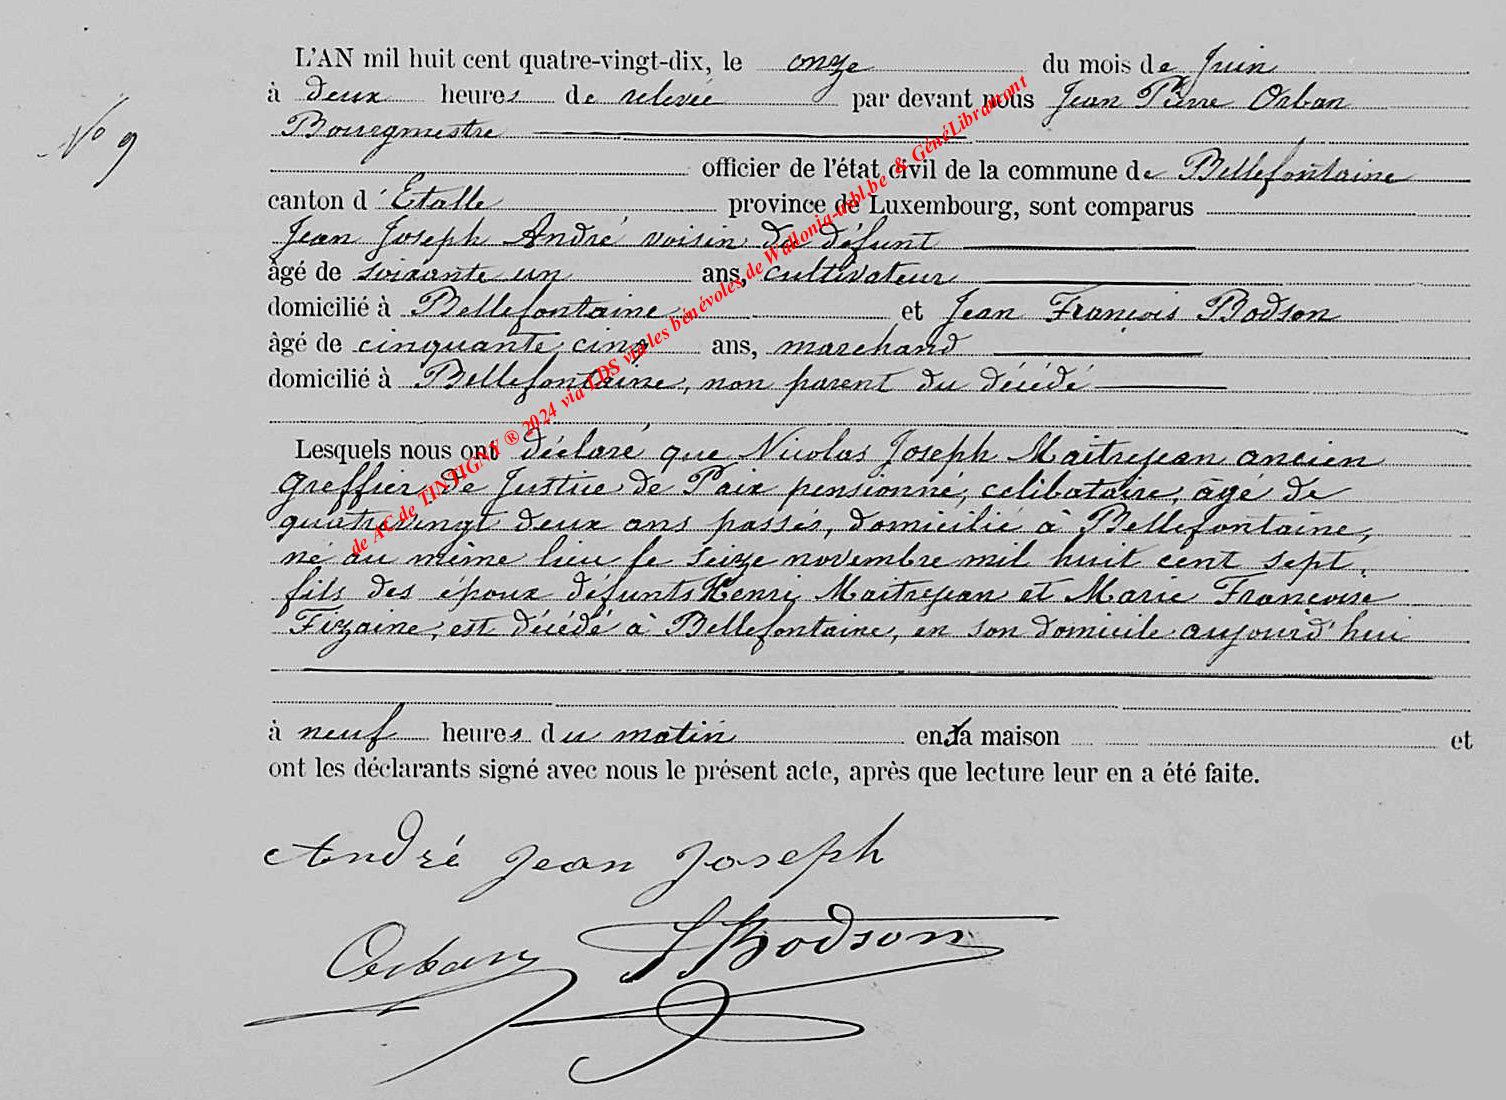 L'AN mil huit cent quatre-vingt-dix, le onze du mois de Juin
à deux heures de relevée par devant nous Jean Pierre Orban
N° 9
Bourgmestre
officier de l'état civil de la commune de Bellefontaine
canton d'Etalle province de Luxembourg, sont comparus
Jean Joseph André voisin du défunt
âgé de soixante un ans, cultivateur
domicilié à Bellefontaine et Jean François Bodson
âgé de cinquante cinq ans, marchand
domicilié à Bellefontaine, non parent du décédé
Lesquels nous ont déclaré que Nicolas Joseph Maitrejean ancien
greffier de Justice de Paix pensionné, celibataire, âgé de
quatre vingt deux ans passés, domicilié à Bellefontaine,
né au même lieu le seize novembre mil huit cent sept,
fils des époux défunts Henri Maitrejean et Marie Françoise
Fizaine, est décédé à Bellefontaine, en son domicile aujourd'hui
à neuf heures du matin en la maison et
ont les déclarants signé avec nous le présent acte, après que lecture leur en a été faite.
André Jean Joseph
Orban JBodson
de AC de TINTIGNY ® 2024 via LDS via les bénévoles de Wallonia-asbl.be & GénéLibramont